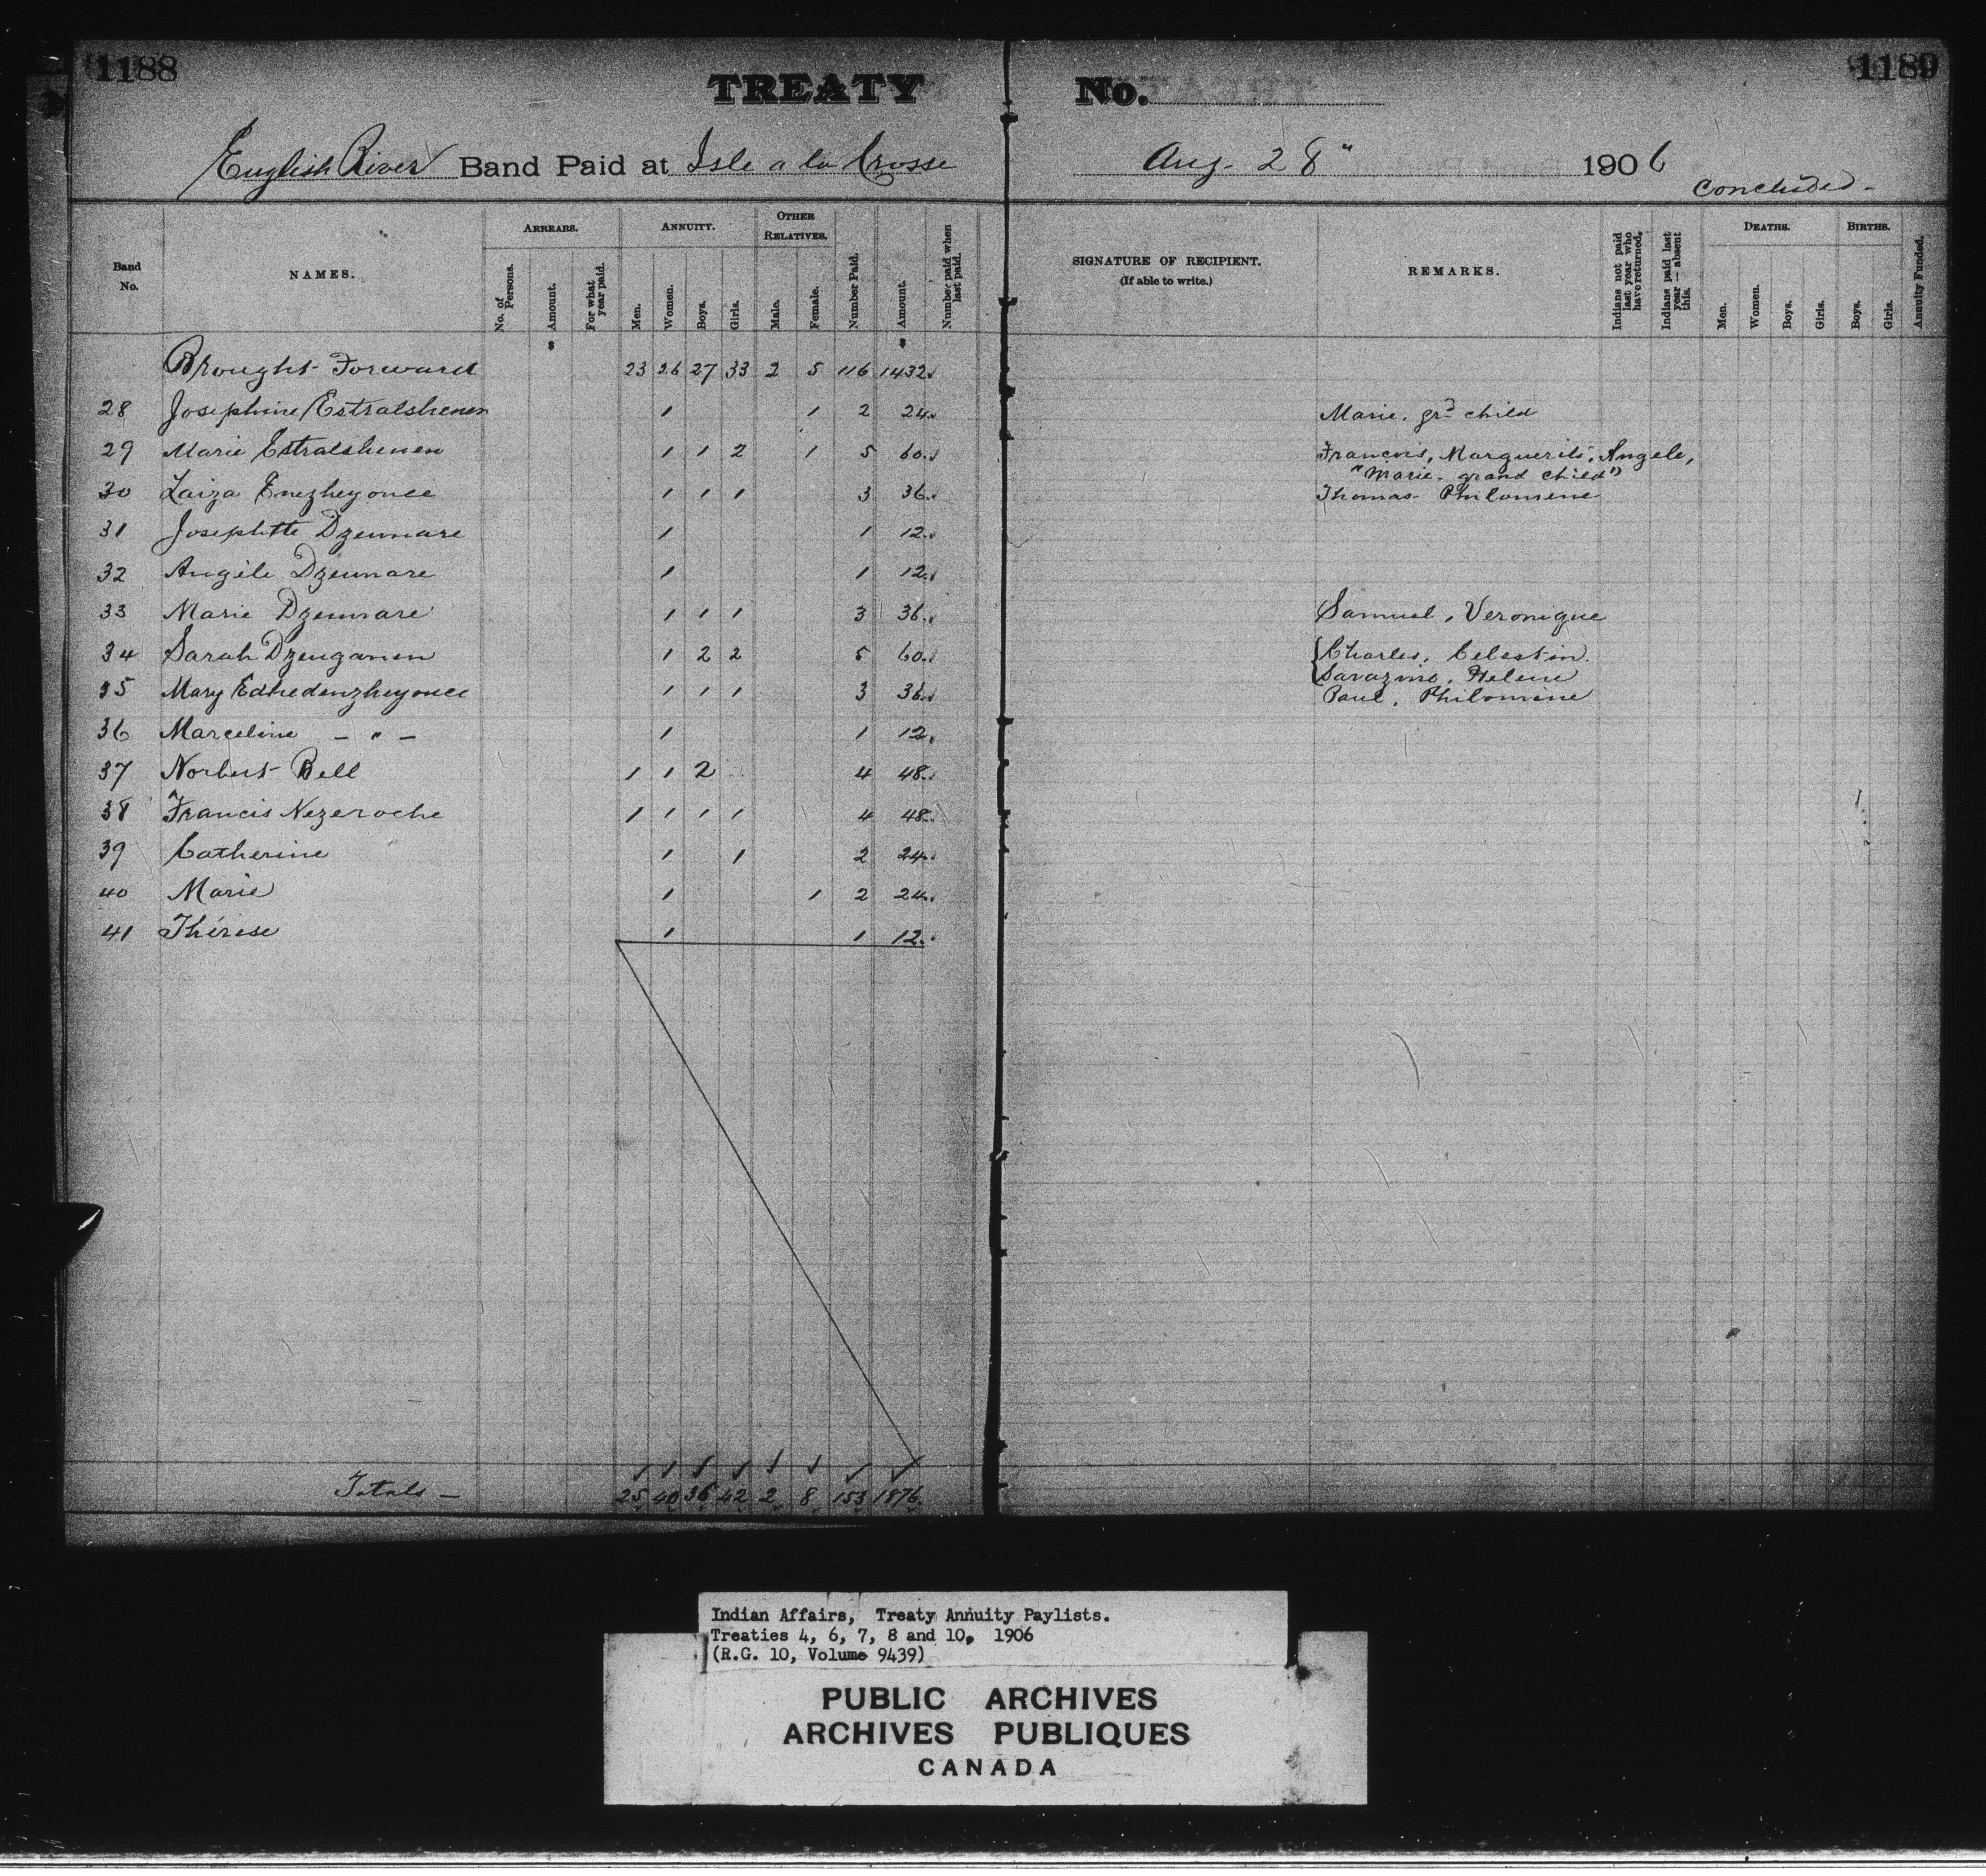 1188
1189
TREATY No.
English River Band Paid at Isle a la Crosse Aug. 28" 1906
Concluded -
Band No.
NAMES.
ARREARS.
No. of Persons.
Amount.
For what year paid.
ANNUITY.
Men.
Women.
Boys.
Girls.
OTHER RELATIVES.
Male.
Female.
Number Paid.
Amount.
Number paid when last paid.
SIGNATURE OF RECIPIENT.
(If able to write.)
REMARKS.
Indians not paid last year who have returned.
Indians paid last year — absent this.
DEATHS.
Men.
Women.
Boys.
Girls.
BIRTHS.
Boys.
Girls.
Annuity Funded.
$ $
Brought Forward 23 26 27 33 2 5 116 1432
28 Josephine Estralshenen 1 1 2 24 Marie. grd child
29 Marie Estralshenen 1 1 2 1 5 60 Francois, Marguerite, Angele,
"Marie - grand child"
30 Laiza Enezheyonce 1 1 1 3 36 Thomas Philomene
31 Josephette Dzennare 1 1 12
32 Angèle Dzennare 1 1 12
33 Marie Dzennare 1 1 1 3 36 Samuel, Veronique
34 Sarah Dzenganen 1 2 2 5 60 Charles, Celestin.
Sarazine, Helene
35 Mary Edhedenzheyonce 1 1 1 3 36 Paul, Philomine
36 Marceline - " - 1 1 12
37 Norbert Bell 1 1 2 4 48
38 Francis Nezeroche 1 1 1 1 4 48
39 Catherine 1 1 2 24
40 Marie 1 1 2 24
41 Thérèse 1 1 12
Totals - 25 40 36 42 2 8 153 1876
Indian Affairs, Treaty Annuity Paylists.
Treaties 4, 6, 7, 8 and 10, 1906
(R.G. 10, Volume 9439)
PUBLIC ARCHIVES
ARCHIVES PUBLIQUES
CANADA